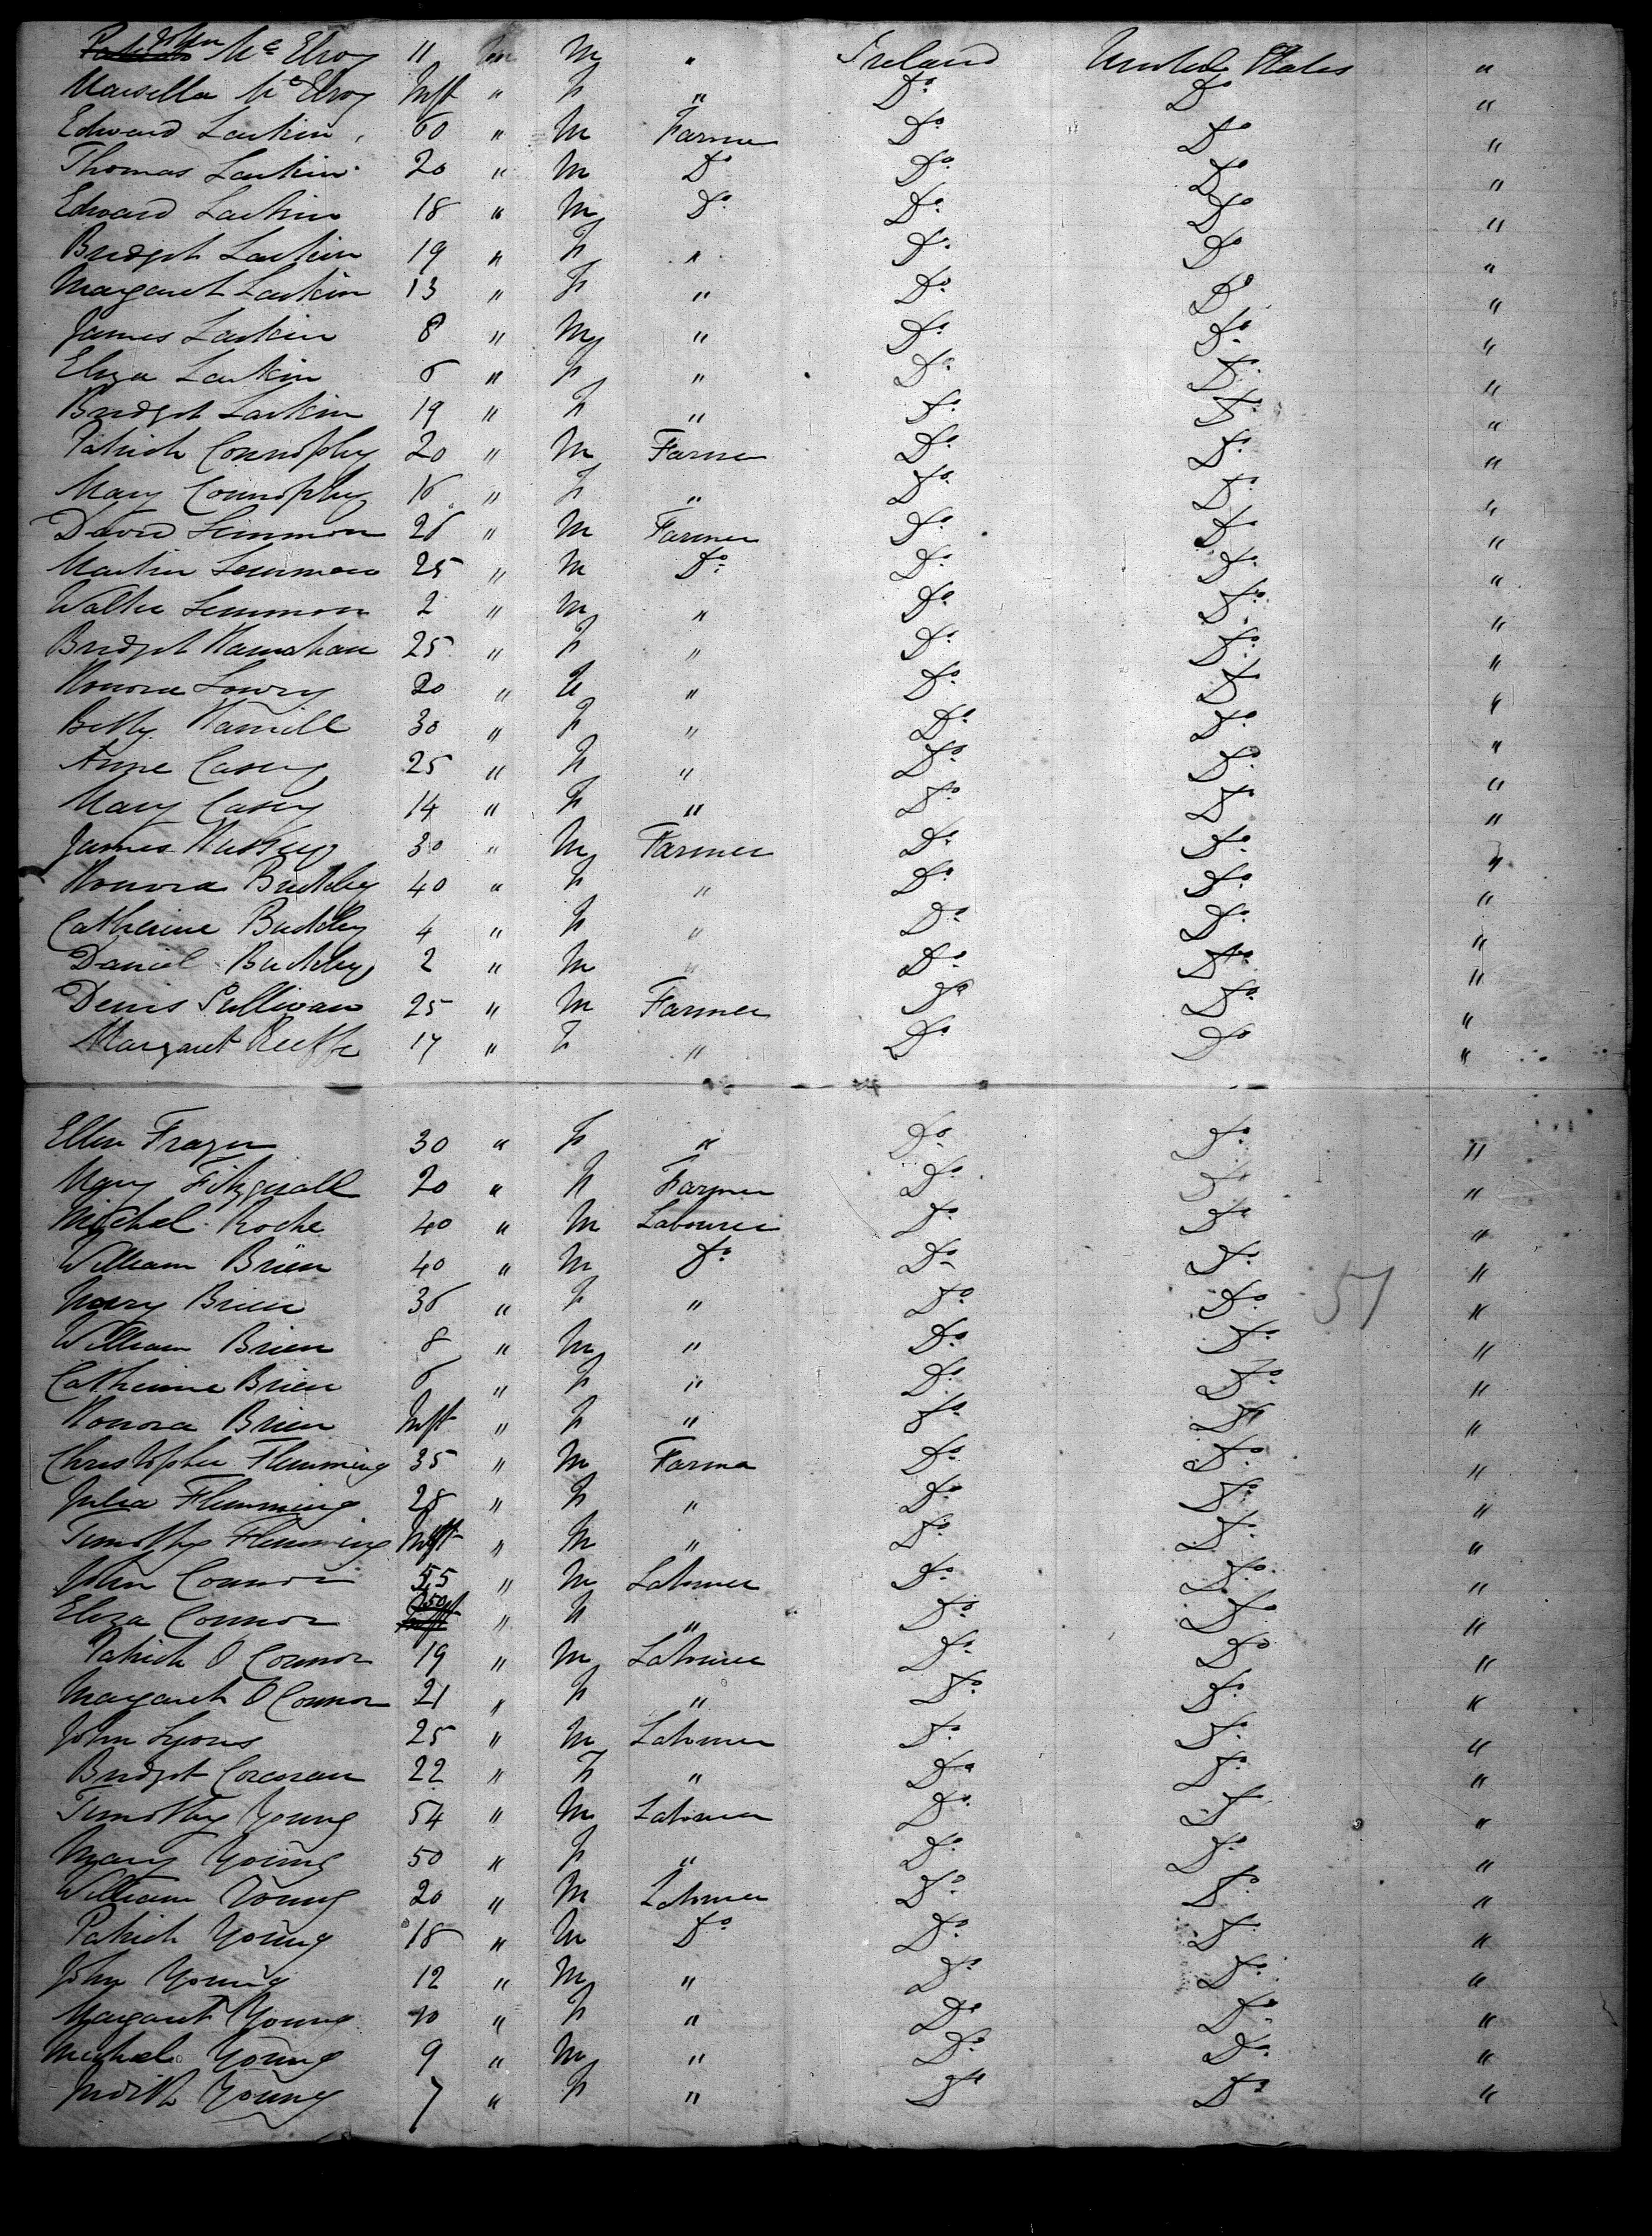 John Mc Elroy 11 M " Ireland United States "
Marsella Mc Elroy Inft " F " Do Do "
Edward Larkin 60 " M Farmer Do Do "
Thomas Larkin 20 " M Do Do Do "
Edward Larkin 18 " M Do Do Do "
Bridget Larkin 19 " F " Do Do "
Margaret Larkin 13 " F " Do Do "
James Larkin 8 " M " Do Do "
Eliza Larkin 6 " F " Do Do "
Bridget Larkin 19 " F " Do Do "
Patrick 20 " M Farmer Do Do "
Mary 16 " F " Do Do "
David Lemmon 26 " M Farmer Do Do "
Martin Lemmon 25 " M Do Do Do "
Walter Lemmon 2 " M " Do Do "
Bridget 25 " F " Do Do "
Honora Lowry 20 " F " Do Do "
Betty Hamill 30 " F " Do Do "
Anne Casey 25 " F " Do Do "
Mary Casey 14 " F " Do Do "
James 30 " M Farmer Do Do "
Honora Buckley 40 " F " Do Do "
Catherine Buckley 4 " F " Do Do "
Daniel Buckley 2 " M " Do Do "
Denis Sullivan 25 " M Farmer Do Do "
Margaret Keeffe 17 " F " Do Do "
Ellen Frazer 30 " F " Do Do "
Mary Fitzgerald 20 " F Farmer Do Do "
Michael Roche 40 " M Labourer Do Do "
William Brien 40 " M Do Do Do "
Mary Brien 36 " F " Do Do 57 "
William Brien 8 " M " Do Do "
Catherine Brien 6 " F " Do Do "
Honora Brien Inft " F " Do Do "
Christopher Flemming 35 " M Farmer Do Do "
Julia Flemming 28 " F " Do Do "
Timothy Flemming Inft " M " Do Do "
John Connor 55 " M Labourer Do Do "
Eliza Connor 50 " F " Do Do "
Patrick O Connor 19 " M Labourer Do Do "
Margaret O Connor 21 " F " Do Do "
John Lyons 25 " M Labourer Do Do "
Bridget Corcoran 22 " F " Do Do "
Timothy Young 54 " M Labourer Do Do "
Mary Young 50 " F " Do Do "
William Young 20 " M Labourer Do Do "
Patrick Young 18 " M Do Do Do "
John Young 12 " M " Do Do "
Margaret Young 10 " F " Do Do "
Michael Young 9 " M " Do Do "
Judith Young 7 " F " Do Do "